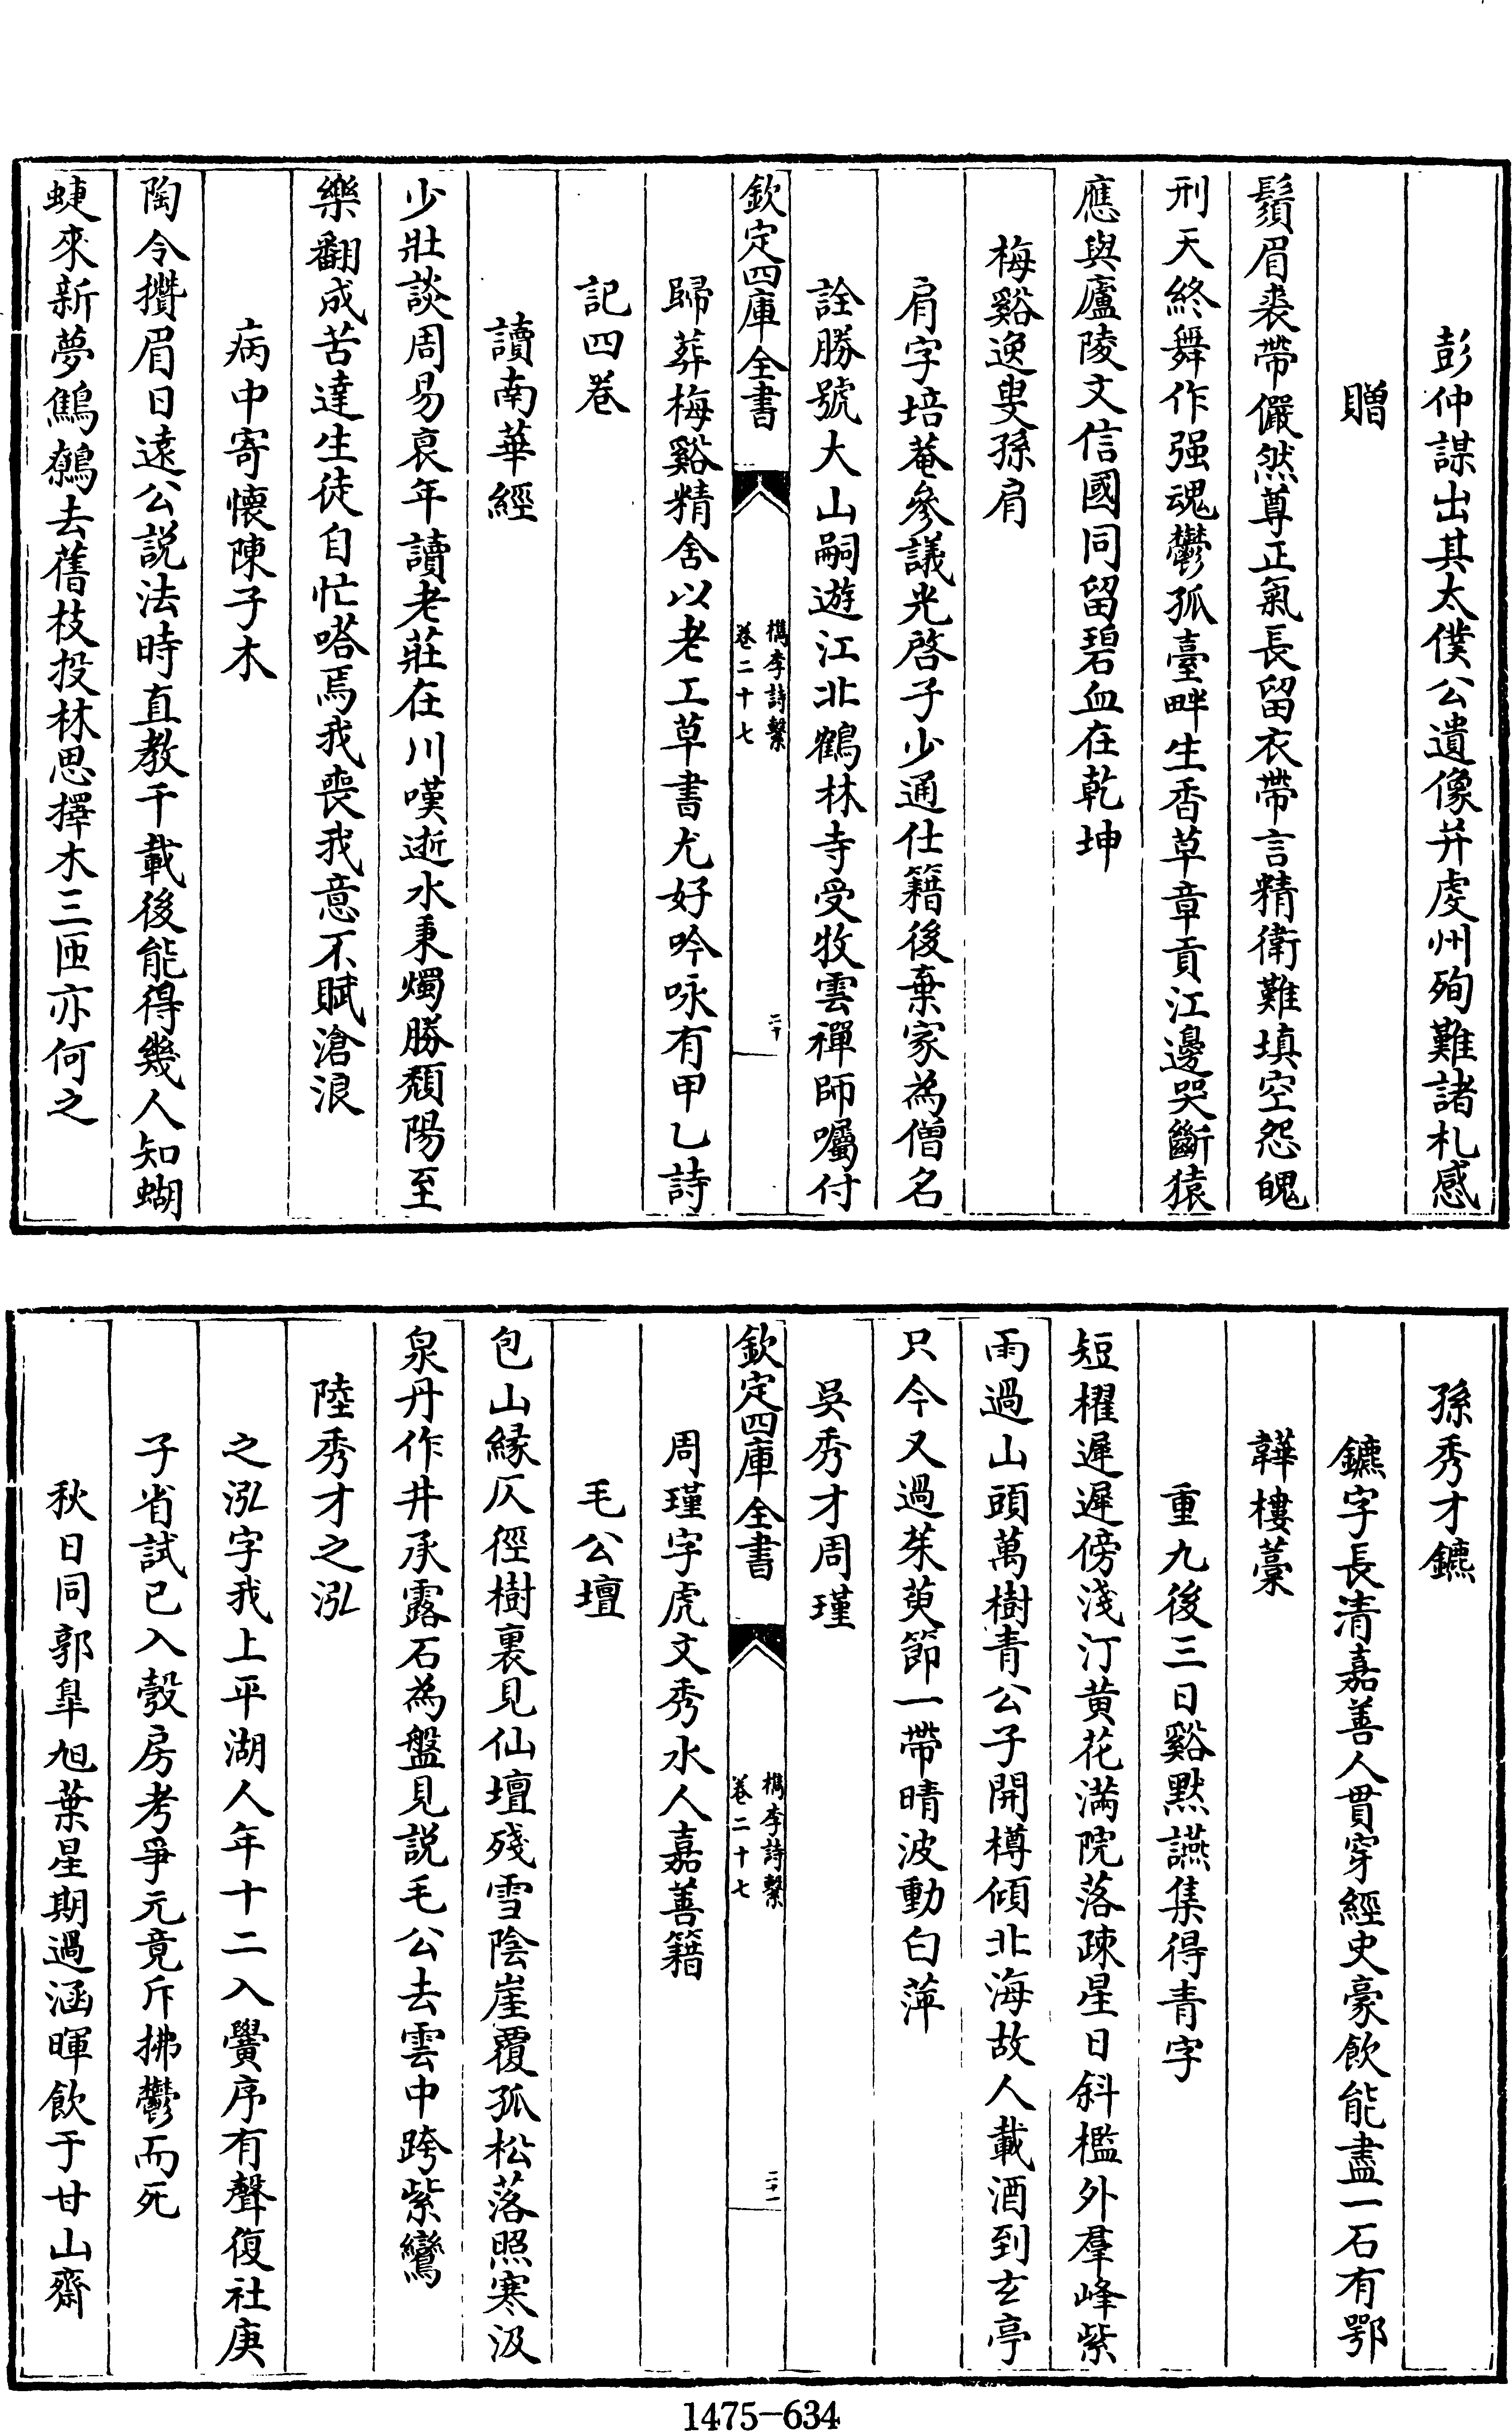 彭仲謀出其太僕公遺像并虔州殉難諸札感
贈
鬚眉裘帶儼然尊正氣長留衣帶言精衛難填空怨魄
刑天終舞作强魂鬱孤臺畔生香草章貢江邊哭斷猿
應與廬陵文信國同留碧血在乾坤
梅谿逸叟孫肩
肩字培菴參議光啓子少通仕籍後棄家為僧名
詮勝號大山嗣遊江北鶴林寺受牧雲禪師囑付
欽定四庫全書
檇李詩繫
卷二十七
二十
歸葬梅谿精舍以老工草書尤好吟咏有甲乙詩
記四卷
讀南華經
少壯談周易哀年讀老莊在川嘆逝水秉燭勝頽陽至
樂翻成苦達生徒自忙嗒焉我喪我意不賦滄浪
病中寄懷陳子木
陶令攢眉日遠公説法時直教千載後能得幾人知蝴
蜨來新夢鷦鷯去舊枝投林思擇木三匝亦何之
孫秀才鑣
鑣字長清嘉善人貫穿經史豪飲能盡一石有鄂
韡樓藁
重九後三日谿默讌集得青字
短櫂遲遲傍淺汀黄花滿院落疎星日斜檻外羣峰紫
雨過山頭萬樹青公子開樽傾北海故人載酒到玄亭
只今又過茱萸節一帶晴波動白萍
吳秀才周瑾
欽定四庫全書
檇李詩繫
卷二十七
二十一
周瑾字虎文秀水人嘉善籍
毛公壇
包山緣仄徑樹裏見仙壇殘雪陰崖覆孤松落照寒汲
泉丹作井承露石為盤見説毛公去雲中跨紫鸞
陸秀才之泓
之泓字我上平湖人年十二入黌序有聲復社庚
子省試已入彀房考爭元竟斥拂鬱而死
秋日同郭臯旭葉星期過涵暉飲于甘山齋
1475-634